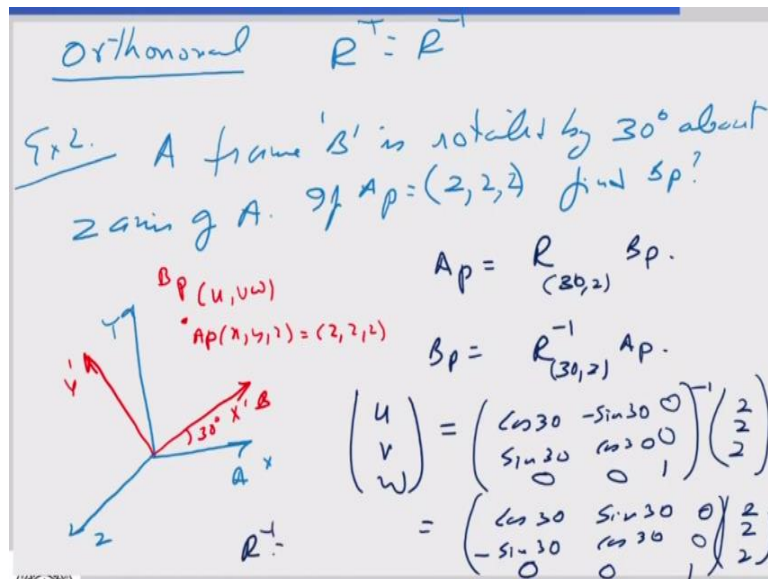 Orthonoral R^T = R^-1
Ex2. A frame 'B' is rotated by 30° about
z axis of A. If Ap = (2,2,2) find Bp?
Ap = R(30,z) Bp.
Bp (u,vw)
Ap(x,y,z) = (2,2,2)
Bp = R^-1(30,z) Ap.
Y
Y'
X' B
30°
A x
z
(u v w) = (cos30 -sin30 0
sin30 cos30 0
0 0 1)^-1 (2 2 2)
= (cos30 sin30 0
-sin30 cos30 0
0 0 1) (2 2 2)
R^-1 =